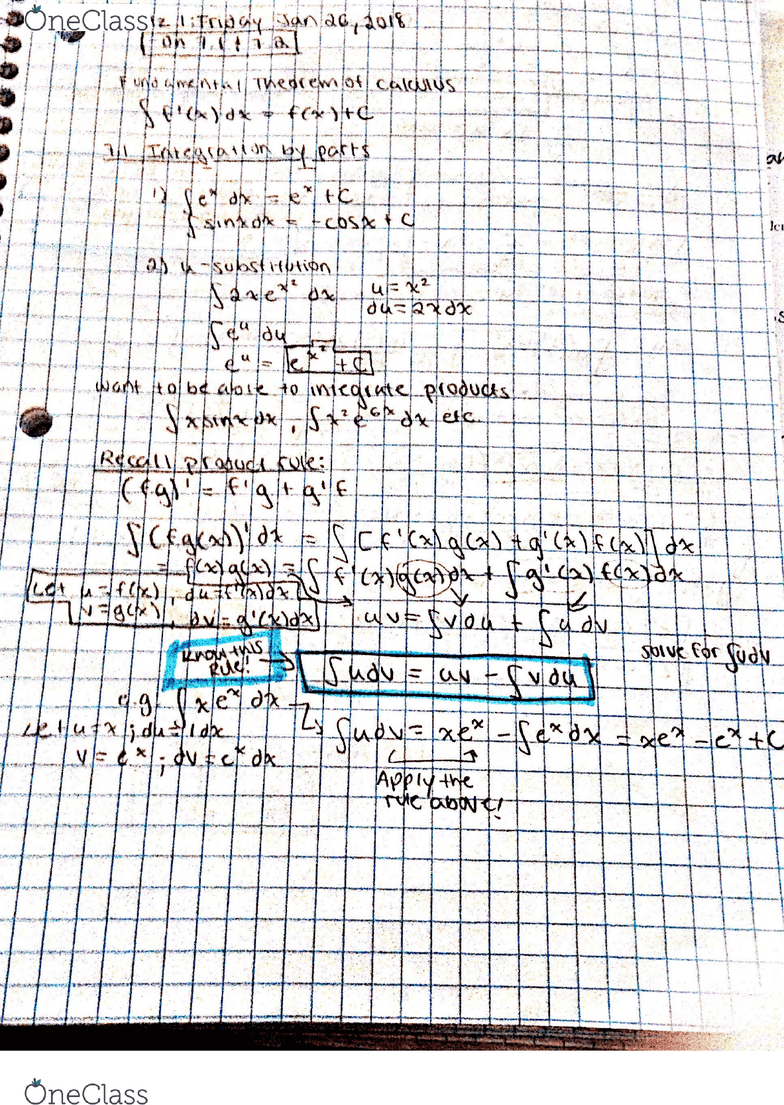 OneClass
1: Friday Jan 26, 2018
on 7.1 + 7.2
Fundamental Theorem of Calculus
∫ f'(x) dx = f(x) + C
7.1 Integration by parts
1) ∫ e^x dx = e^x + C
∫ sinx dx = -cosx + C
2) u-substitution
∫ 2x e^(x²) dx u = x²
du = 2x dx
∫ e^u du
e^u = e^(x²) + C
want to be able to integrate products
∫ x sinx dx, ∫ x² e^(6x) dx etc.
Recall product rule:
(fg)' = f'g + g'f
∫ (fg(x))' dx = ∫ [f'(x)g(x) + g'(x)f(x)] dx
= f(x)g(x) = ∫ f'(x)g(x)dx + ∫ g'(x) f(x)dx
Let u = f(x), du = f'(x)dx
v = g(x), dv = g'(x)dx
uv = ∫ v du + ∫ u dv
solve for ∫ u dv
know this
RULE!
∫ u dv = uv - ∫ v du
e.g. ∫ x e^x dx
Let u = x ; du = 1 dx
v = e^x ; dv = e^x dx
∫ u dv = xe^x - ∫ e^x dx = xe^x - e^x + C
Apply the
rule above!
OneClass